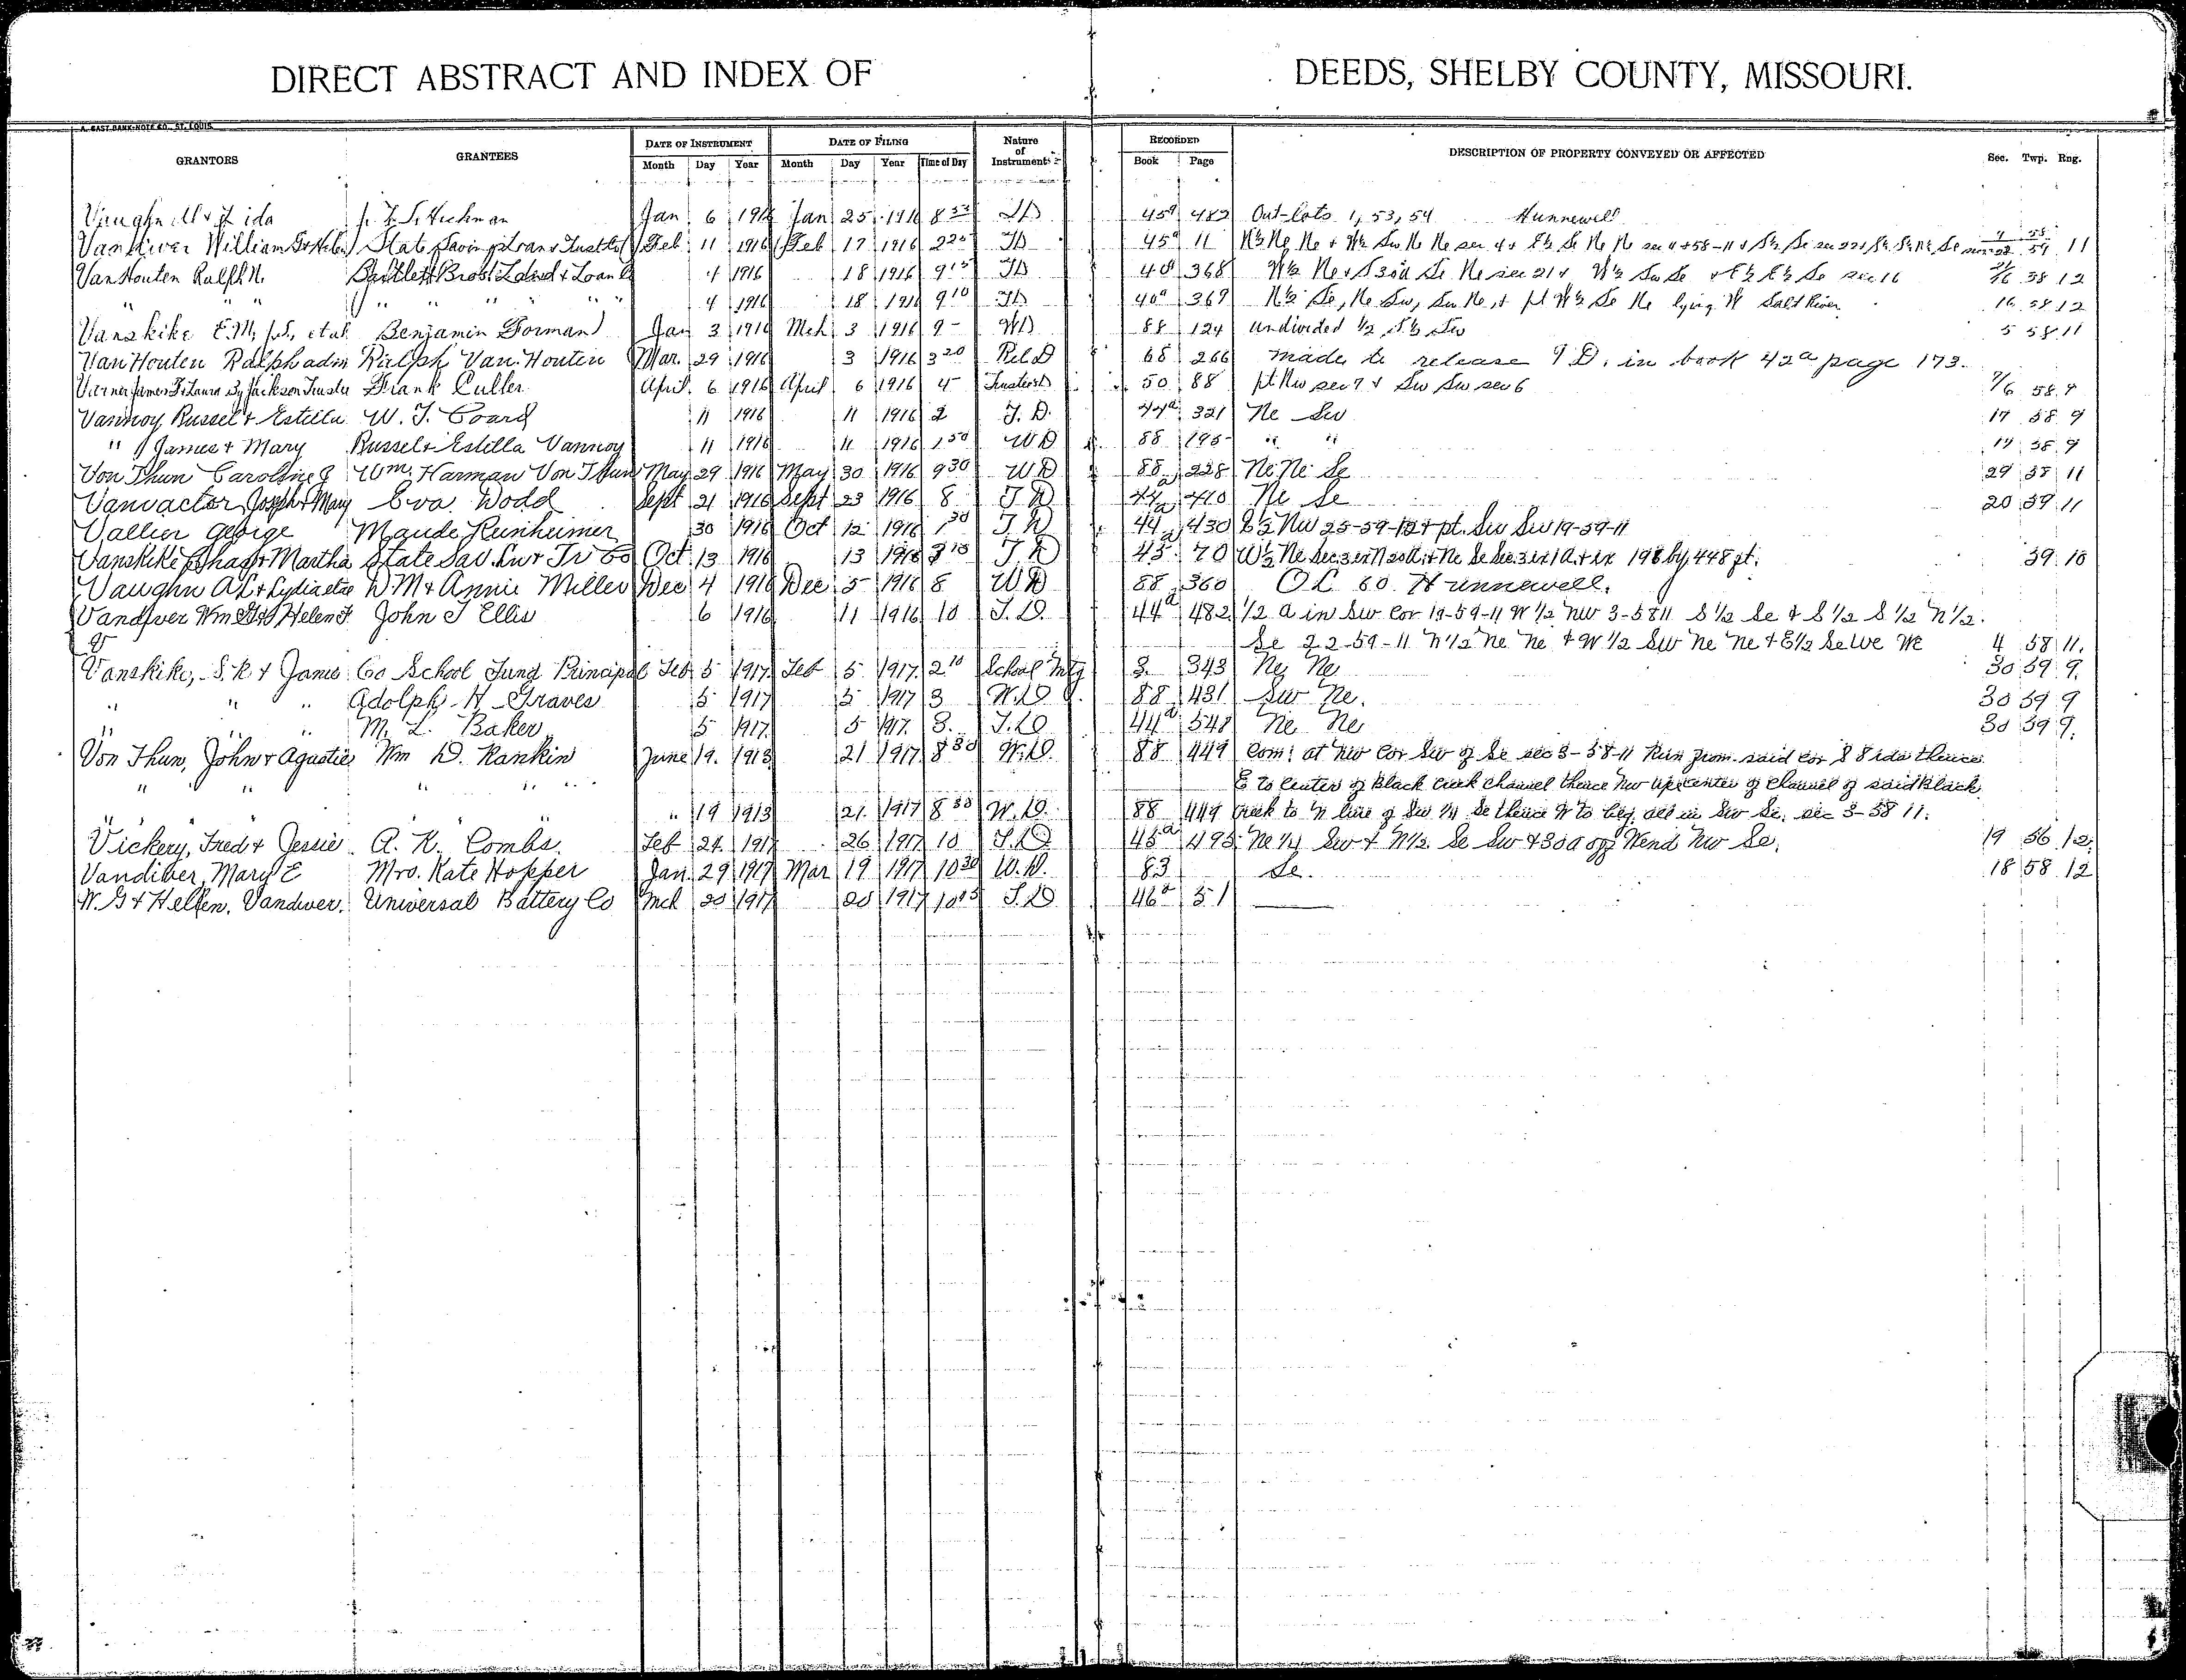 DIRECT ABSTRACT AND INDEX OF DEEDS, SHELBY COUNTY, MISSOURI.
A. GAST BANK NOTE CO., ST. LOUIS
GRANTORS GRANTEES DATE OF INSTRUMENT DATE OF FILING Nature of Instrument RECORDED DESCRIPTION OF PROPERTY CONVEYED OR AFFECTED Sec. Twp. Rng.
Month Day Year Month Day Year Time of Day Book Page
Vaughn Jan 6 Jan 25 1916 45a 482 Out-lots 1, 53, 54 Hunnewell
Vandiver William Feb 11 1916 Feb 17 1916 TD 45a 11 11
Van Houten Ralph N. Bartlett Bros Land & Loan Co 4 1916 18 1916 9 15 TD 40a 368 58 12
" " " " " " " 4 1916 18 1916 9 10 TD 40a 369 N½ Se, Ne Sw, Sw Ne, + pt W½ Se Ne lying W Salt River 16 58 12
Vanskike E.M, et al Benjamin Forman Jan 3 1916 Mch 3 1916 9 - WD 88 124 undivided ½ Sw 5 58 11
Van Houten Ralph adm Ralph Van Houten Mar. 29 1916 3 1916 3 20 Rel D 68 266 made to release T D. in book 42a page 173.
Frank Culler April 6 1916 April 6 1916 4 - Trusters D 50 88 pt Nw sec 7 + Sw Sw sec 6 7/6 58 9
Vannoy Russel & Estella W. J. Coard 11 1916 11 1916 2 T. D. 44a 321 Ne Sw 17 58 9
" James + Mary Russel & Estilla Vannoy 11 1916 11 1916 1 50 WD 88 195 " " 17 58 9
Von Thun Caroline Wm. Harman Von Thun May 29 1916 May 30 1916 9 30 WD 88 228 Ne Ne Se 29 58 11
Vanvactor Joseph & Mary Eva Dodd Sept 21 1916 Sept 23 1916 8 T D 44a 410 Ne Se 20 59 11
Vallier George Maude 30 1916 Oct 12 1916 1 30 T. D 44a 430 E½ Nw 25-59-12 + pt. Sw Sw 19-59-11
Vanskike & Martha State Sav. Ln & Tr Co Oct 13 1916 13 1916 T. D 45a 70 W½ Ne 198 by 448 ft. 59 10
Vaughn A L & Lydia D. M & Annie Miller Dec 4 1916 Dec 5 1916 8 WD 88 360 O L 60 Hunnewell.
Vandiver Wm & Helen F. John J Ellis 6 1916 11 1916 10 T. D. 44a 482 ½ a in Sw Cor 19-59-11 W ½ Nw 3-58 11 S ½ Se & S ½ S ½ N ½
Se 22-59-11 N ½ Ne Ne + W ½ Sw Ne Ne + E ½ Se Ne 4 58 11.
Vanskike, S. R & Janie Co School Fund Principal Feb 5 1917 Feb 5 1917 2 10 School Mtg 3 343 Ne Ne 30 59 9.
" " " Adolph H Graves 5 1917 5 1917 3 W. D 88 431 Sw Ne. 30 59 9
" " " M. L. Baker 5 1917 5 1917 3. T. D 44a 548 Ne Ne 30 59 9.
Von Thun, John & Wm D. Rankin June 19. 1913 21 1917 8 30 W. D. 88 449 Com; at Nw Cor Sw of Se sec 3-58-11 Run from said cor S 8 rds thence
" " " " " E to Center of Black Creek Channel thence Nw up center of Channel of said Black
" 19 1913 21 1917 8 30 W. D. 88 449 Creek to N line of Sw ¼ Se thence W to beg. all in Sw Se, sec 3-58 11.
Vickery, Fred & Jessie A. K. Combs. Feb 24 1917 26 1917 10 T. D 45a 495 Ne ¼ Sw & N ½ Se Sw & 30 a off W end Nw Se. 19 56 12.
Vandiver, Mary E Mrs. Kate Hopper Jan. 29 1917 Mar 19 1917 10 30 W. D. 83 Se. 18 58 12
W. G & Hellen. Vandiver. Universal Battery Co Mch 20 1917 20 1917 T. D 46a 51